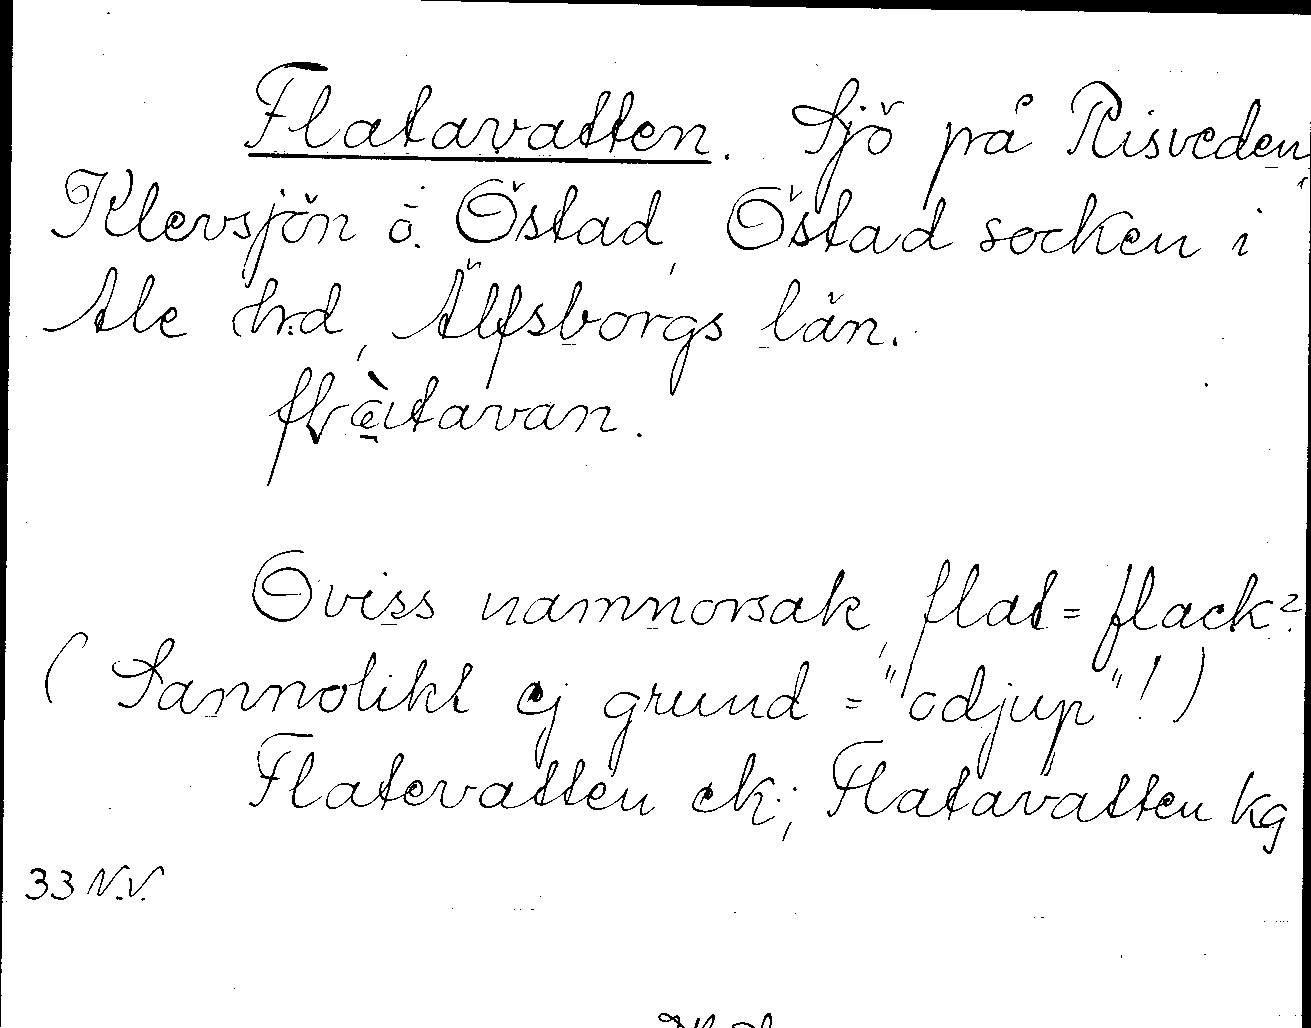 Flatavatten. Sjö på Risveden,
Klevsjön ö. Östad, Östad socken i
Ale hrd, Älfsborgs län.
Oviss namnorsak, flat = flack?
(Sannolikt ej grund = "odjup"!)
Flatevatten ek; Flatavatten kg
33 N.V.